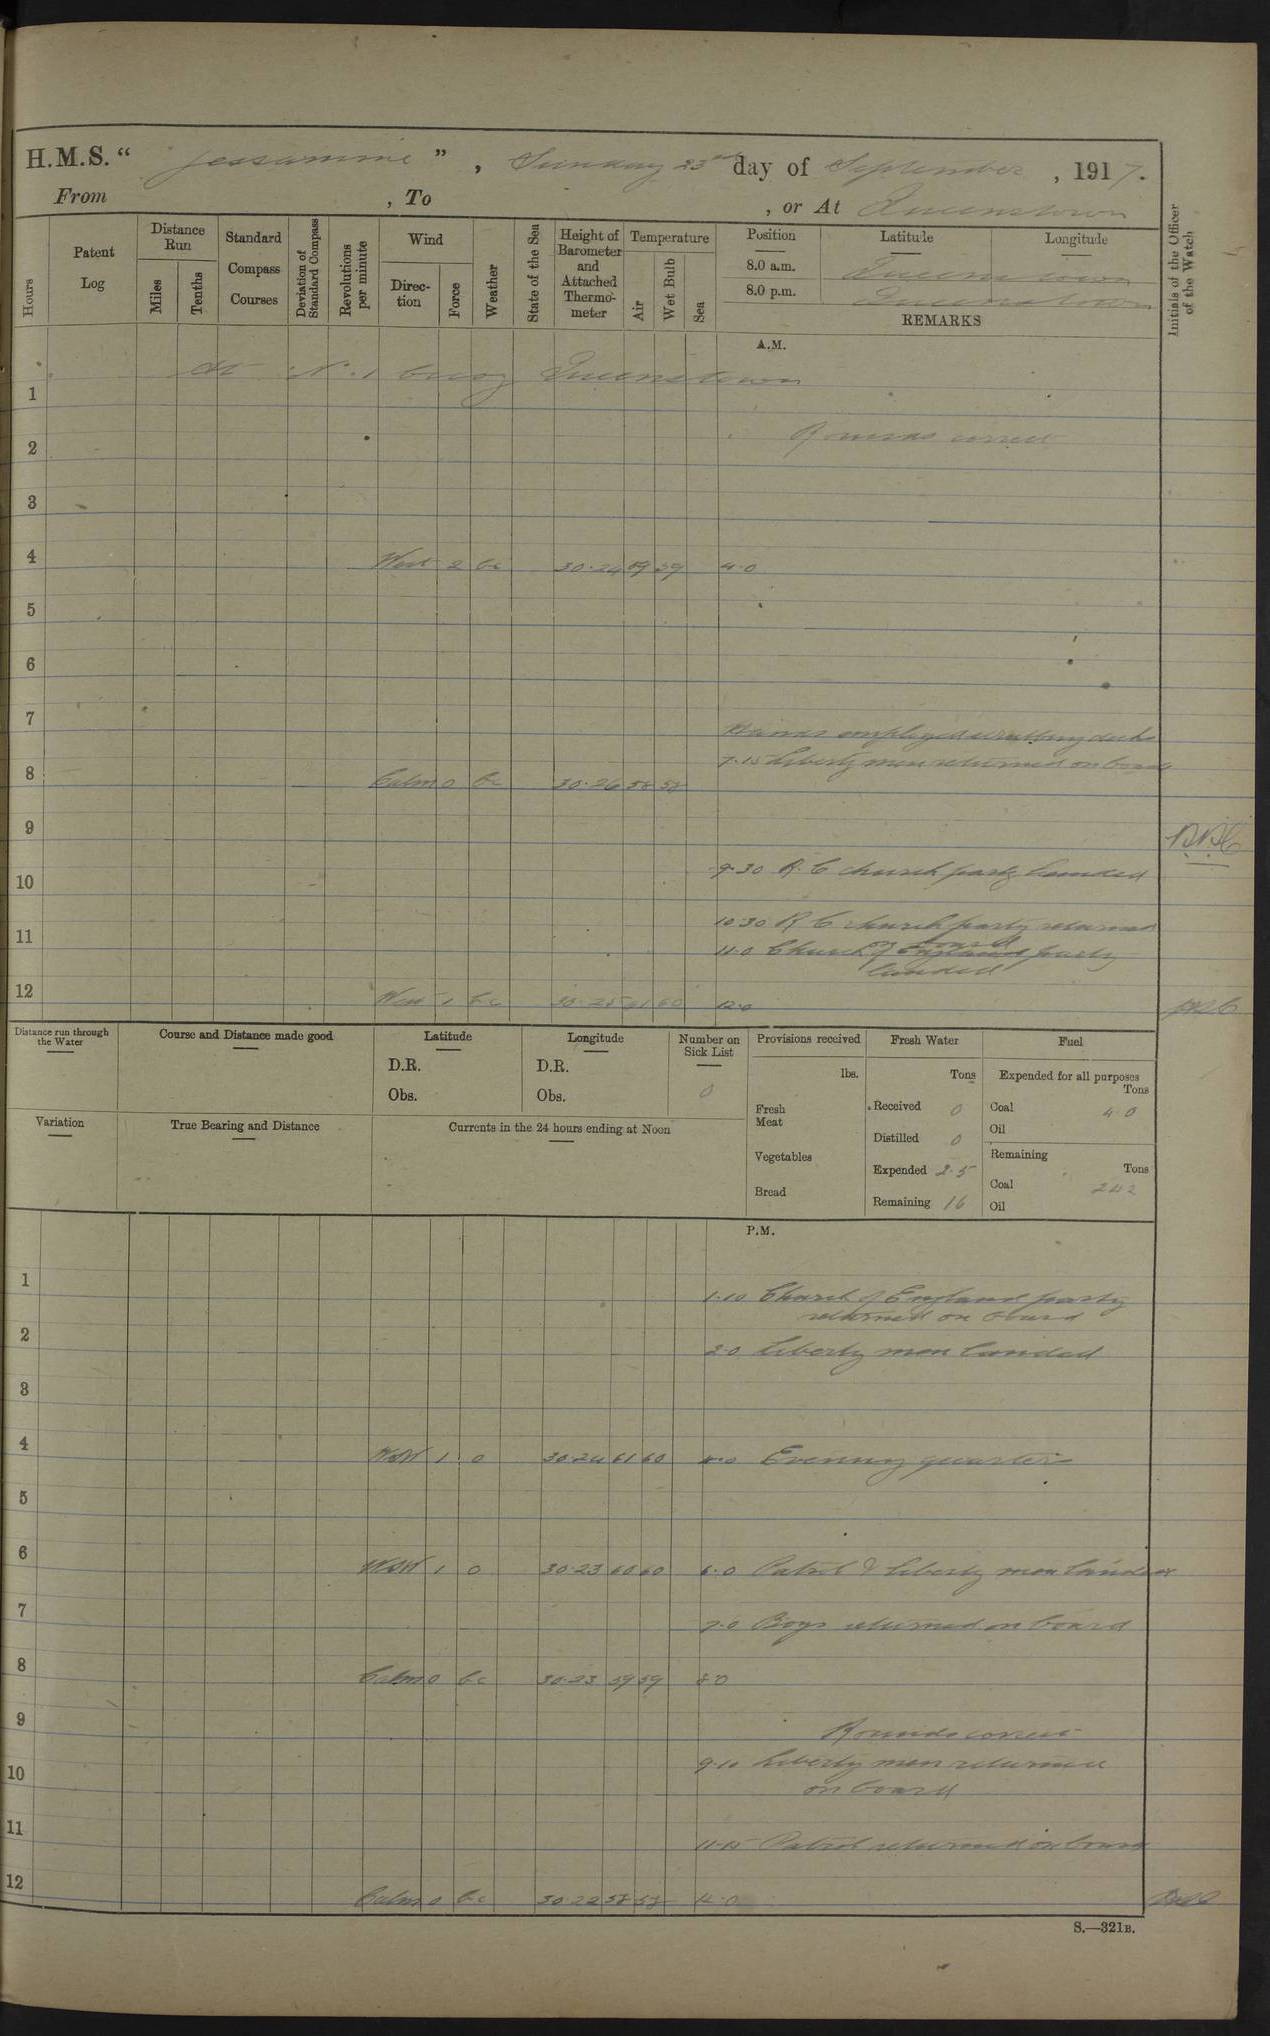 H.M.S. “ Jessamine ” , Sunday 23rd day of September , 1917.
From , To , or At Queenstown
Hours
Patent Log
Distance Run
Miles
Tenths
Standard Compass Courses
Deviation of Standard Compass
Revolutions per minute
Wind
Direction
Force
Weather
State of the Sea
Height of Barometer and Attached Thermometer
Temperature
Air
Wet Bulb
Sea
Position
Latitude
Longitude
8.0 a.m. Queenstown
8.0 p.m. Queenstown
REMARKS
Initials of the Officer of the Watch
A.M.
At No. 1 buoy Queenstown
1
2 Rounds correct
3
4 West 2 bc 30.24 59 59 4.0
5
6
7
Hands employed scrubbing decks
7.15 Liberty men returned on board
8 Calm 0 bc 30.26 58 58
9
9.30 R. C church party landed
10
10.30 R C church party returned
on board
11
11.0 Church of England party
landed
12 West 1 bc 30.25 61 60 12.0
Distance run through the Water
Course and Distance made good
Latitude
D.R.
Obs.
Longitude
D.R.
Obs.
Number on Sick List
0
Provisions received
lbs.
Fresh Meat
Vegetables
Bread
Fresh Water
Tons
Received 0
Distilled 0
Expended 2.5
Remaining 16
Fuel
Expended for all purposes
Tons
Coal 4.0
Oil
Remaining
Tons
Coal 242
Oil
Variation
True Bearing and Distance
Currents in the 24 hours ending at Noon
P.M.
1
1.10 Church of England party
returned on board
2
2.0 Liberty men landed
3
4 WSW 1 0 30.24 61 60 4.0 Evening quarters
5
6 WSW 1 0 30.23 60 60 6.0 Patrol & liberty men landed
7
7.0 Boys returned on board
8 Calm 0 bc 30.23 59 59 8.0
9
Rounds correct
9.10 Liberty men returned
on board
10
11
11.15 Patrol returned on board
12 Calm 0 bc 30.22 58 58 12.0
S.—321B.